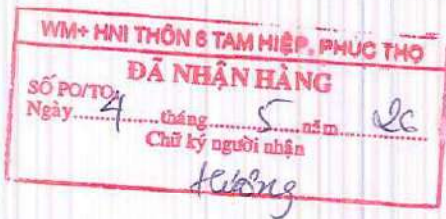 WM+ HNI THÔN 6 TAM HIỆP, PHÚC THỌ
ĐÃ NHẬN HÀNG
SỐ PO/TO
Ngày 4 tháng 5 năm 26
Chữ ký người nhận
Hường